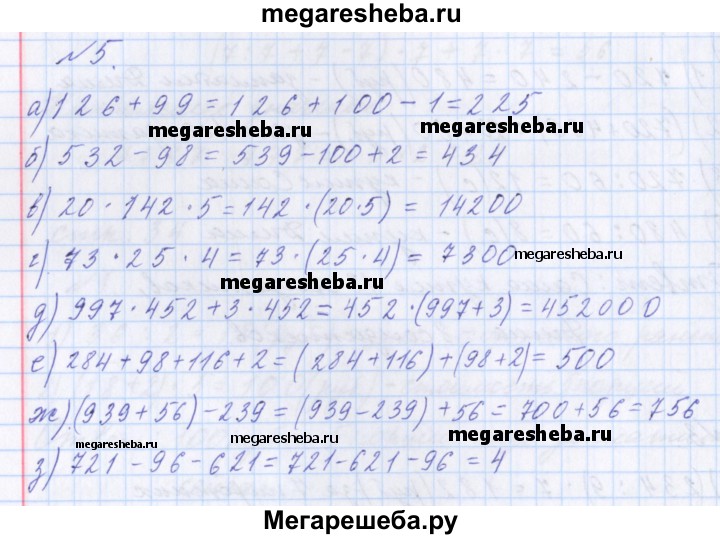 megaresheba.ru
№5.
а) 126 + 99 = 126 + 100 - 1 = 225
megaresheba.ru megaresheba.ru
б) 532 - 98 = 539 - 100 + 2 = 434
в) 20 · 142 · 5 = 142 · (20·5) = 14200
г) 73 · 25 · 4 = 73 · (25 · 4) = 7300 megaresheba.ru
megaresheba.ru
д) 997 · 452 + 3 · 452 = 452 · (997+3) = 452000
е) 284 + 98 + 116 + 2 = (284 + 116) + (98+2) = 500
megaresheba.ru
ж) (939 + 56) - 239 = (939 - 239) + 56 = 700 + 56 = 756
megaresheba.ru megaresheba.ru megaresheba.ru
з) 721 - 96 - 621 = 721 - 621 - 96 = 4
Мегарешеба.ру